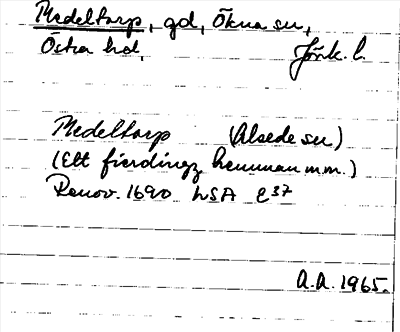 Medeltorp, gd, Ökna sn,
Östra hd, Jönk. l.
Medeltorp (Alseda sn)
(Ett fierdingz hemman m m.)
Renov. 1690 LSA E37
A.A. 1965.